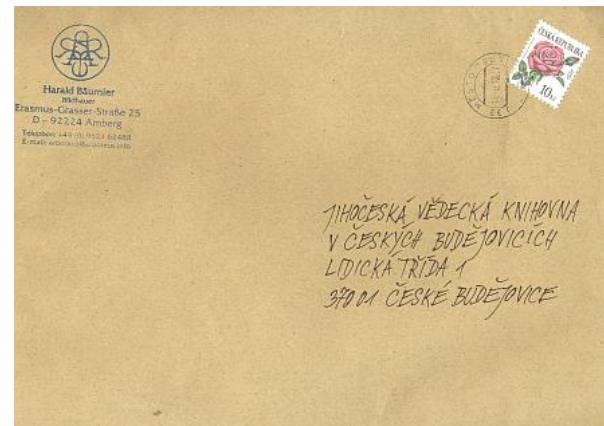 Harald Bäumler
Bildhauer
Erasmus-Grasser-Straße 25
D - 92224 Amberg
ČESKÁ REPUBLIKA
10 Kč
JIHOČESKÁ VĚDECKÁ KNIHOVNA
V ČESKÝCH BUDĚJOVICÍCH
LIDICKÁ TŘÍDA 1
370 01 ČESKÉ BUDĚJOVICE